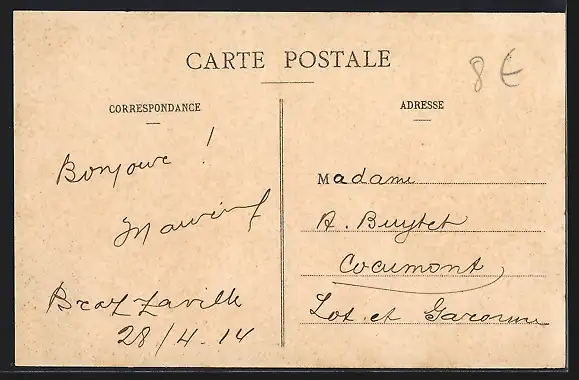 CARTE POSTALE
8 €
CORRESPONDANCE
ADRESSE
Bonjour !
Brazzaville
28/4.14
Madame
A.
Cocumont
Lot et Garonne